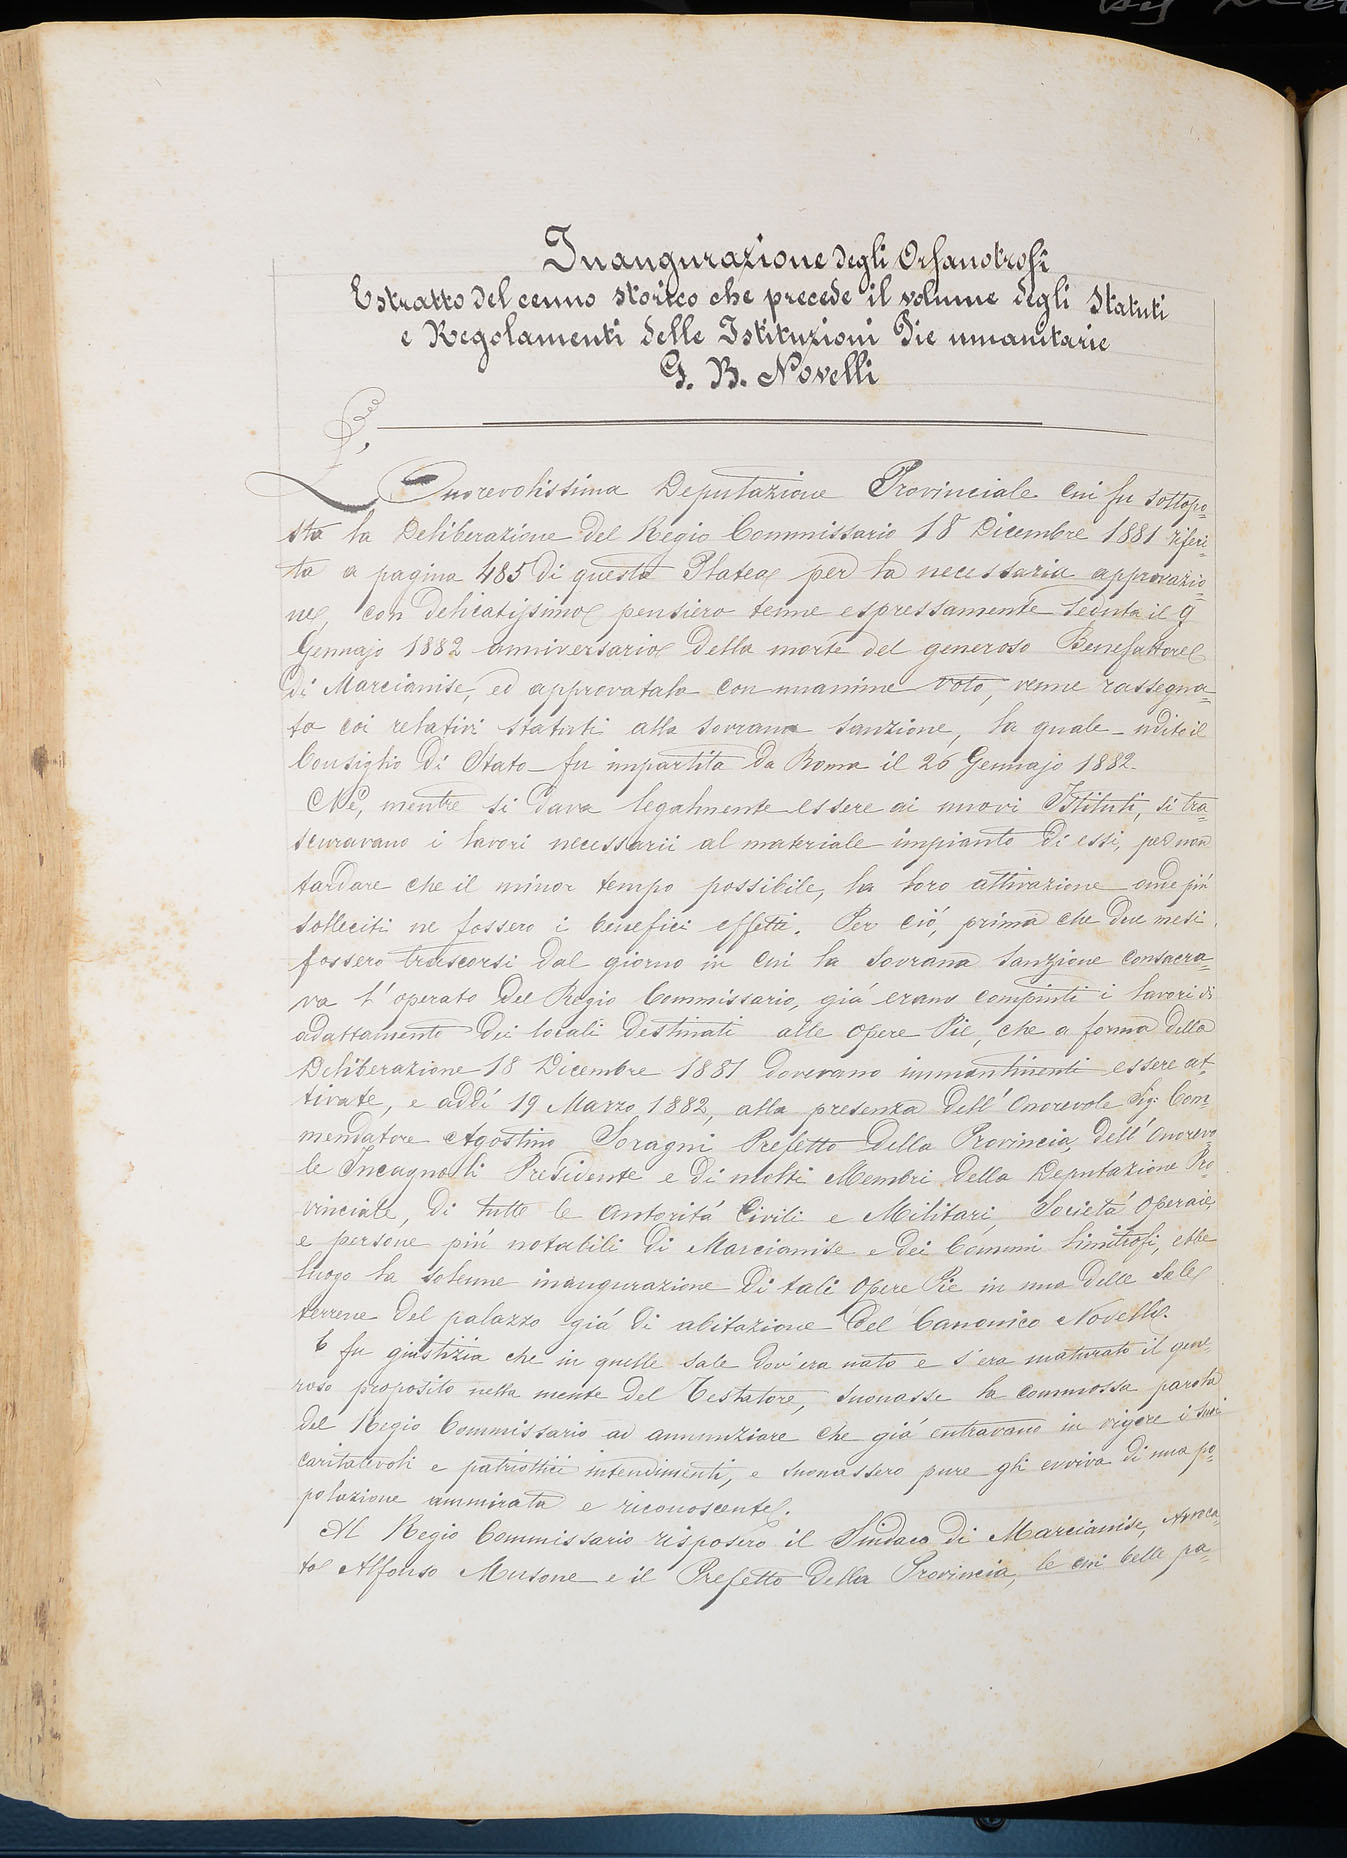 Inaugurazione degli Orfanotrofi
Estratto del cenno storico che precede il volume degli Statuti
e Regolamenti delle Istituzioni Pie umanitarie
G. B. Novelli
L'Onorevolissima Deputazione Provinciale cui fu sottopo=
sta la Deliberazione del Regio Commissario 18 Dicembre 1881 riferi=
ta a pagina 485 di questa Platea per la necessaria approvazio=
ne, con delicatissimo pensiero tenne espressamente seduta il 9
Gennajo 1882 anniversario della morte del generoso Benefattore
di Marcianise, ed approvatala con unanime voto, venne rassegna=
ta coi relativi statuti alla sovrana sanzione, la quale - udito il
Consiglio di Stato - fu impartita da Roma il 26 Gennajo 1882.
Nè, mentre si dava legalmente essere ai nuovi Istituti, si tra=
scuravano i lavori necessarii al materiale impianto di essi, per non
tardare che il minor tempo possibile, la loro attivazione onde più
solleciti ne fossero i benefici effetti. Per ciò, prima che due mesi
fossero trascorsi dal giorno in cui la Sovrana Sanzione consacra=
va l'operato del Regio Commissario, già erano compiuti i lavori di
adattamento dei locali destinati alle Opere Pie, che a forma della
Deliberazione 18 Dicembre 1881 dovevano immantinenti essere at=
tivate, e addì 19 Marzo 1882, alla presenza dell'Onorevole Sig: Com=
mendatore Agostino Soragni Prefetto della Provincia, dell'Onorevo=
le Incagnoli Presidente e di molti Membri della Deputazione Pro=
vinciale, di tutte le autorità Civili e Militari, Società Operaie,
e persone più notabili di Marcianise e dei Comuni limitrofi, ebbe
luogo la solenne inaugurazione di tali Opere Pie in una delle Sale
terrene del palazzo già di abitazione del Canonico Novelli.
E fu giustizia che in quelle sale dov'era nato e s'era maturato il gene=
roso proposito nella mente del Testatore, suonasse la commossa parola
del Regio Commissario ad annunziare che già entravano in vigore i suoi
caritatevoli e patriottici intendimenti, e suonassero pure gli evviva di una po=
polazione ammirata e riconoscente.
Al Regio Commissario risposero il Sindaco di Marcianise, Avvoca=
to Alfonso Musone e il Prefetto della Provincia, le cui belle pa=